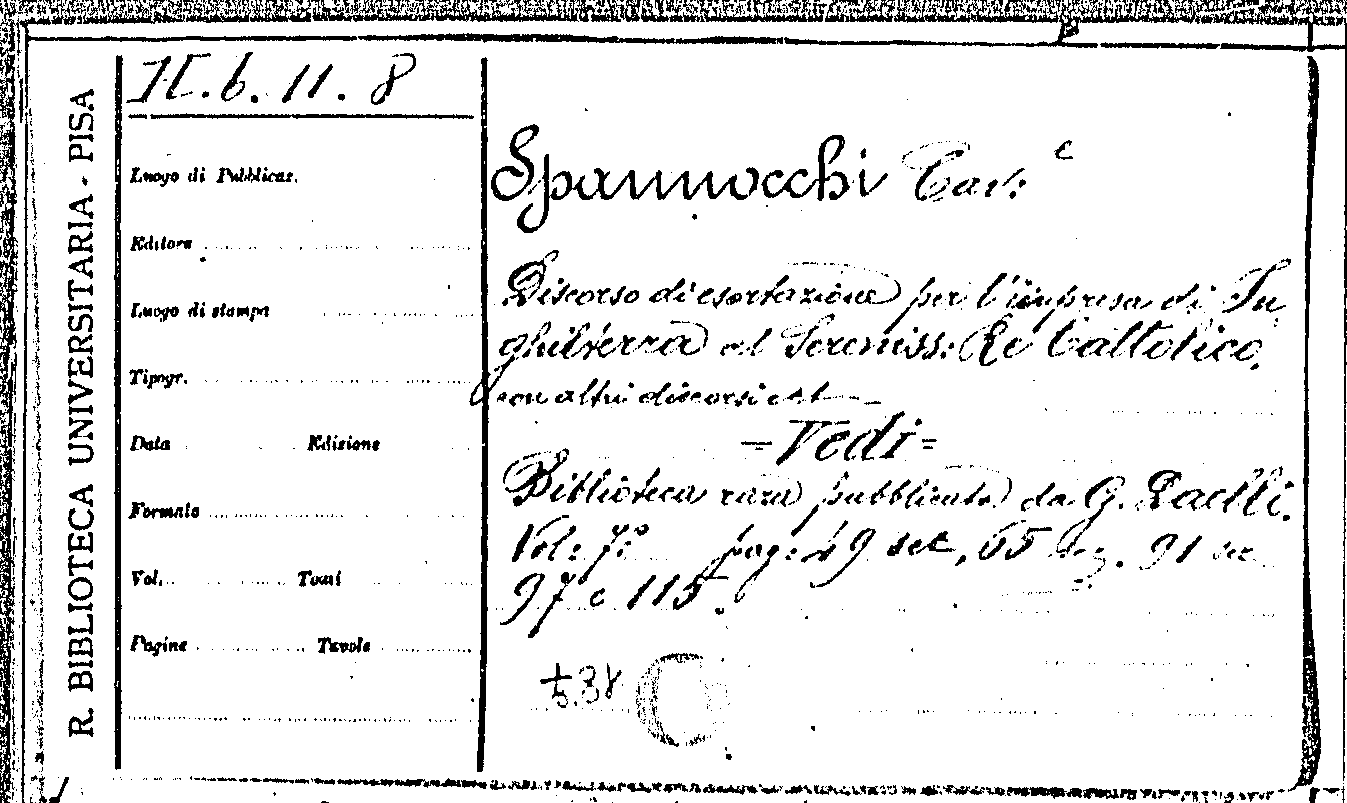 R. BIBLIOTECA UNIVERSITARIA - PISA
H. b. 11. 8
Luogo di Pubblicaz.
Editore
Luogo di stampa
Tipogr.
Data Edizione
Formato
Vol. Tomi
Pagine Tavole
Spannocchi Cav: c
Discorso di esortazione per l'impresa di In
ghilterra al Sereniss: Re Cattolico,
con altri discorsi
= Vedi =
Biblioteca rara pubblicata da G. Daelli.
Vol: 7º pag: 49 seg, 65 seg. 91 seg
97 e 115.